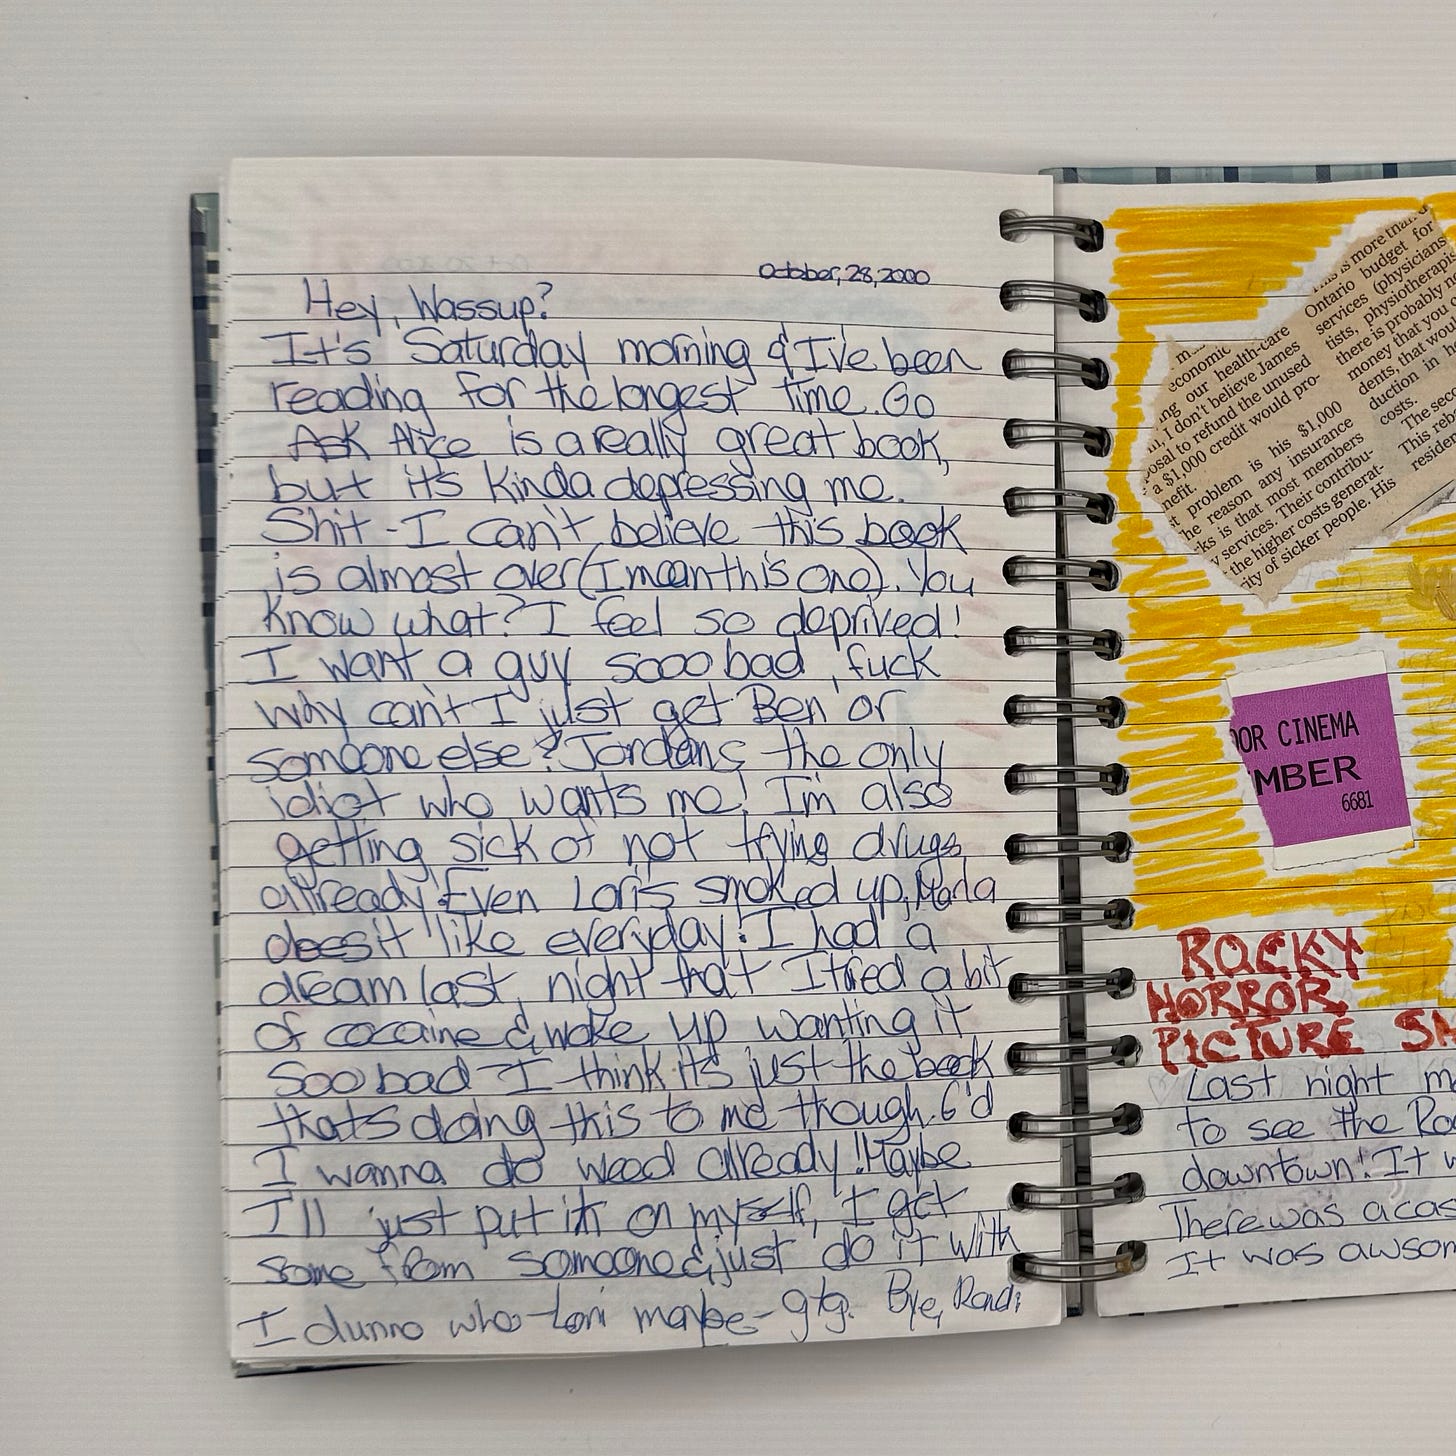 October, 28, 2000
Hey, Wassup?
It's Saturday morning & I've been
reading for the longest time. Go
Ask Alice is a really great book,
but it's kinda depressing me.
Shit - I can't believe this book
is almost over (I mean this one). You
know what? I feel so deprived!
I want a guy sooo bad, fuck
why can't I just get Ben or
someone else? Jordans the only
idiot who wants me! I'm also
getting sick of not trying drugs
allready! Even Lori's smoked up, Marla
does it like everyday! I had a
dream last night that I tried a bit
of cocaine & woke up wanting it
soo bad - I think it's just the book
thats doing this to me though. G'd
I wanna do weed allready! Maybe
I'll just put it on myself, I get
some from someone & just do it with
I dunno who - Lori maybe - gtg. Bye, Randi
is more than
Ontario budget for
services (physicians
tists, physiotherapis
there is probably no
money that you
dents, that woul
duction in he
costs.
The seco
This rebe
reside
economic
ing our health-care
I don't believe James
osal to refund the unused
a $1,000 credit would pro-
nefit.
t problem is his $1,000
he reason any insurance
ks is that most members
y services. Their contribu-
the higher costs generat-
ity of sicker people. His
OOR CINEMA
MBER
6681
ROCKY
HORROR
PICTURE SH
Last night m
to see the Roc
downtown! It w
There was a cas
It was awsom